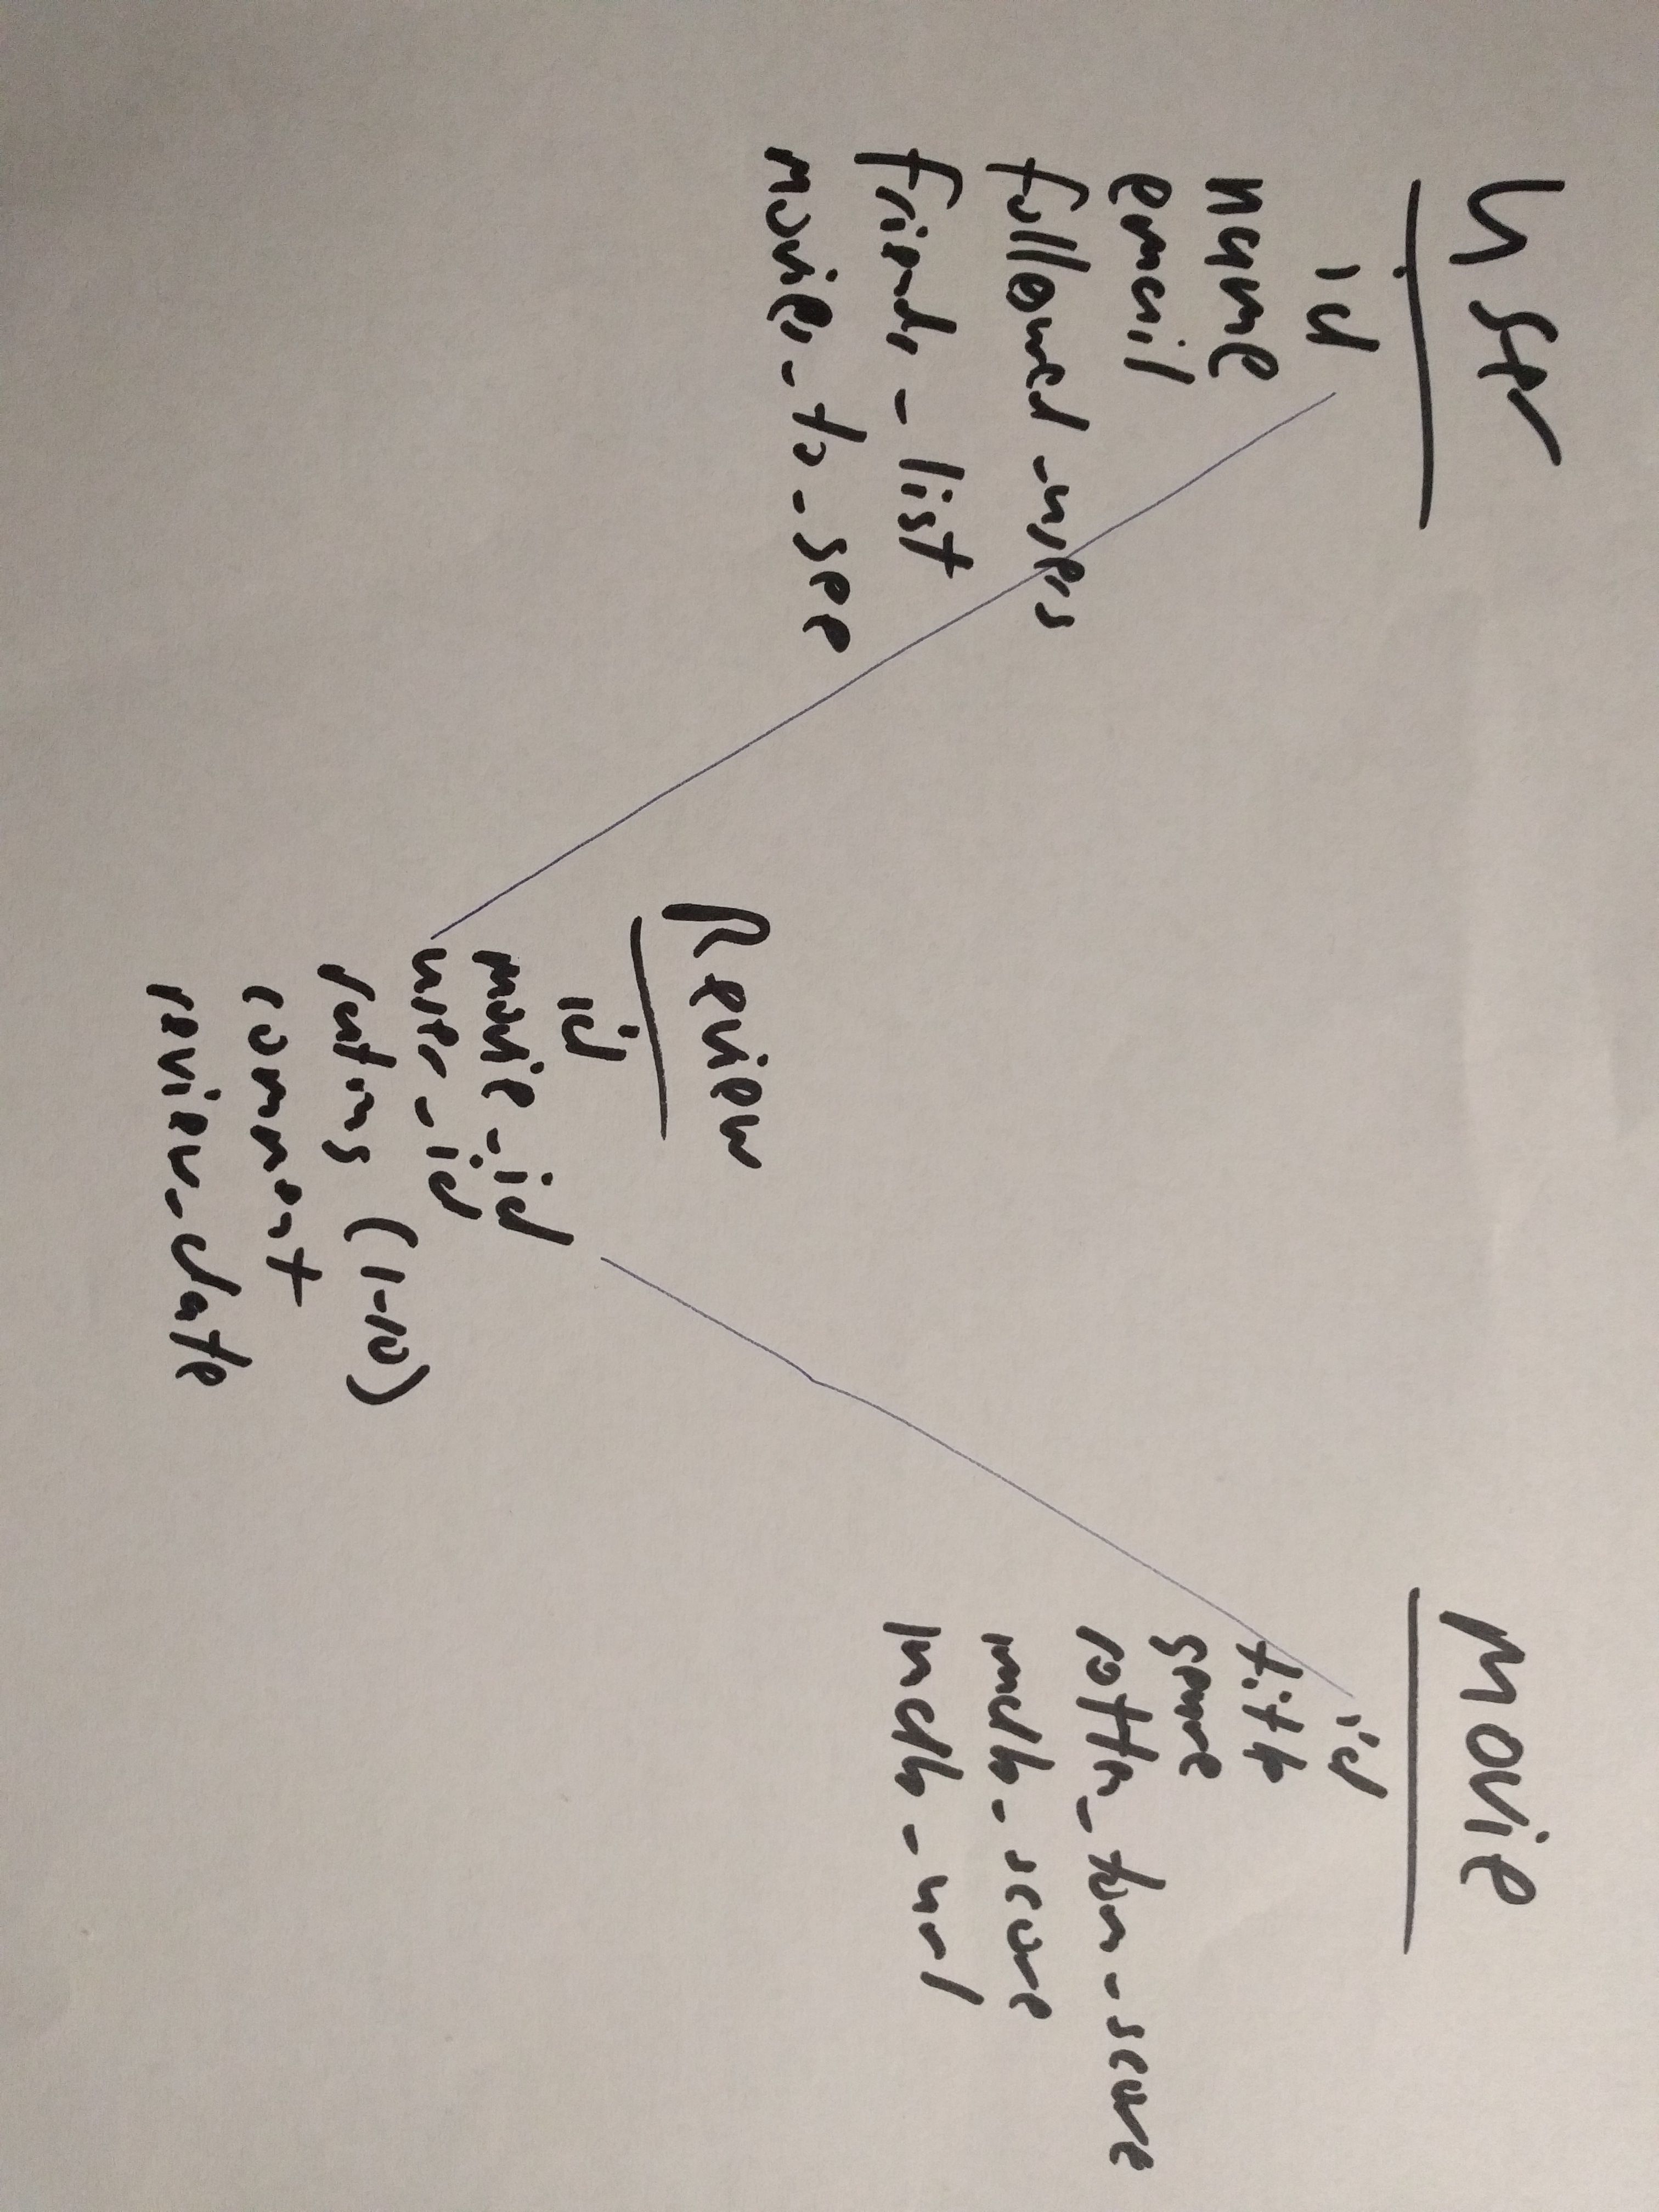 User
id
name
email
followed_users
friends_list
movies_to_see
Movie
id
title
genre
rotten_tom_score
imdb_score
imdb_url
Review
id
movie_id
user_id
rating (1-10)
comment
review_date